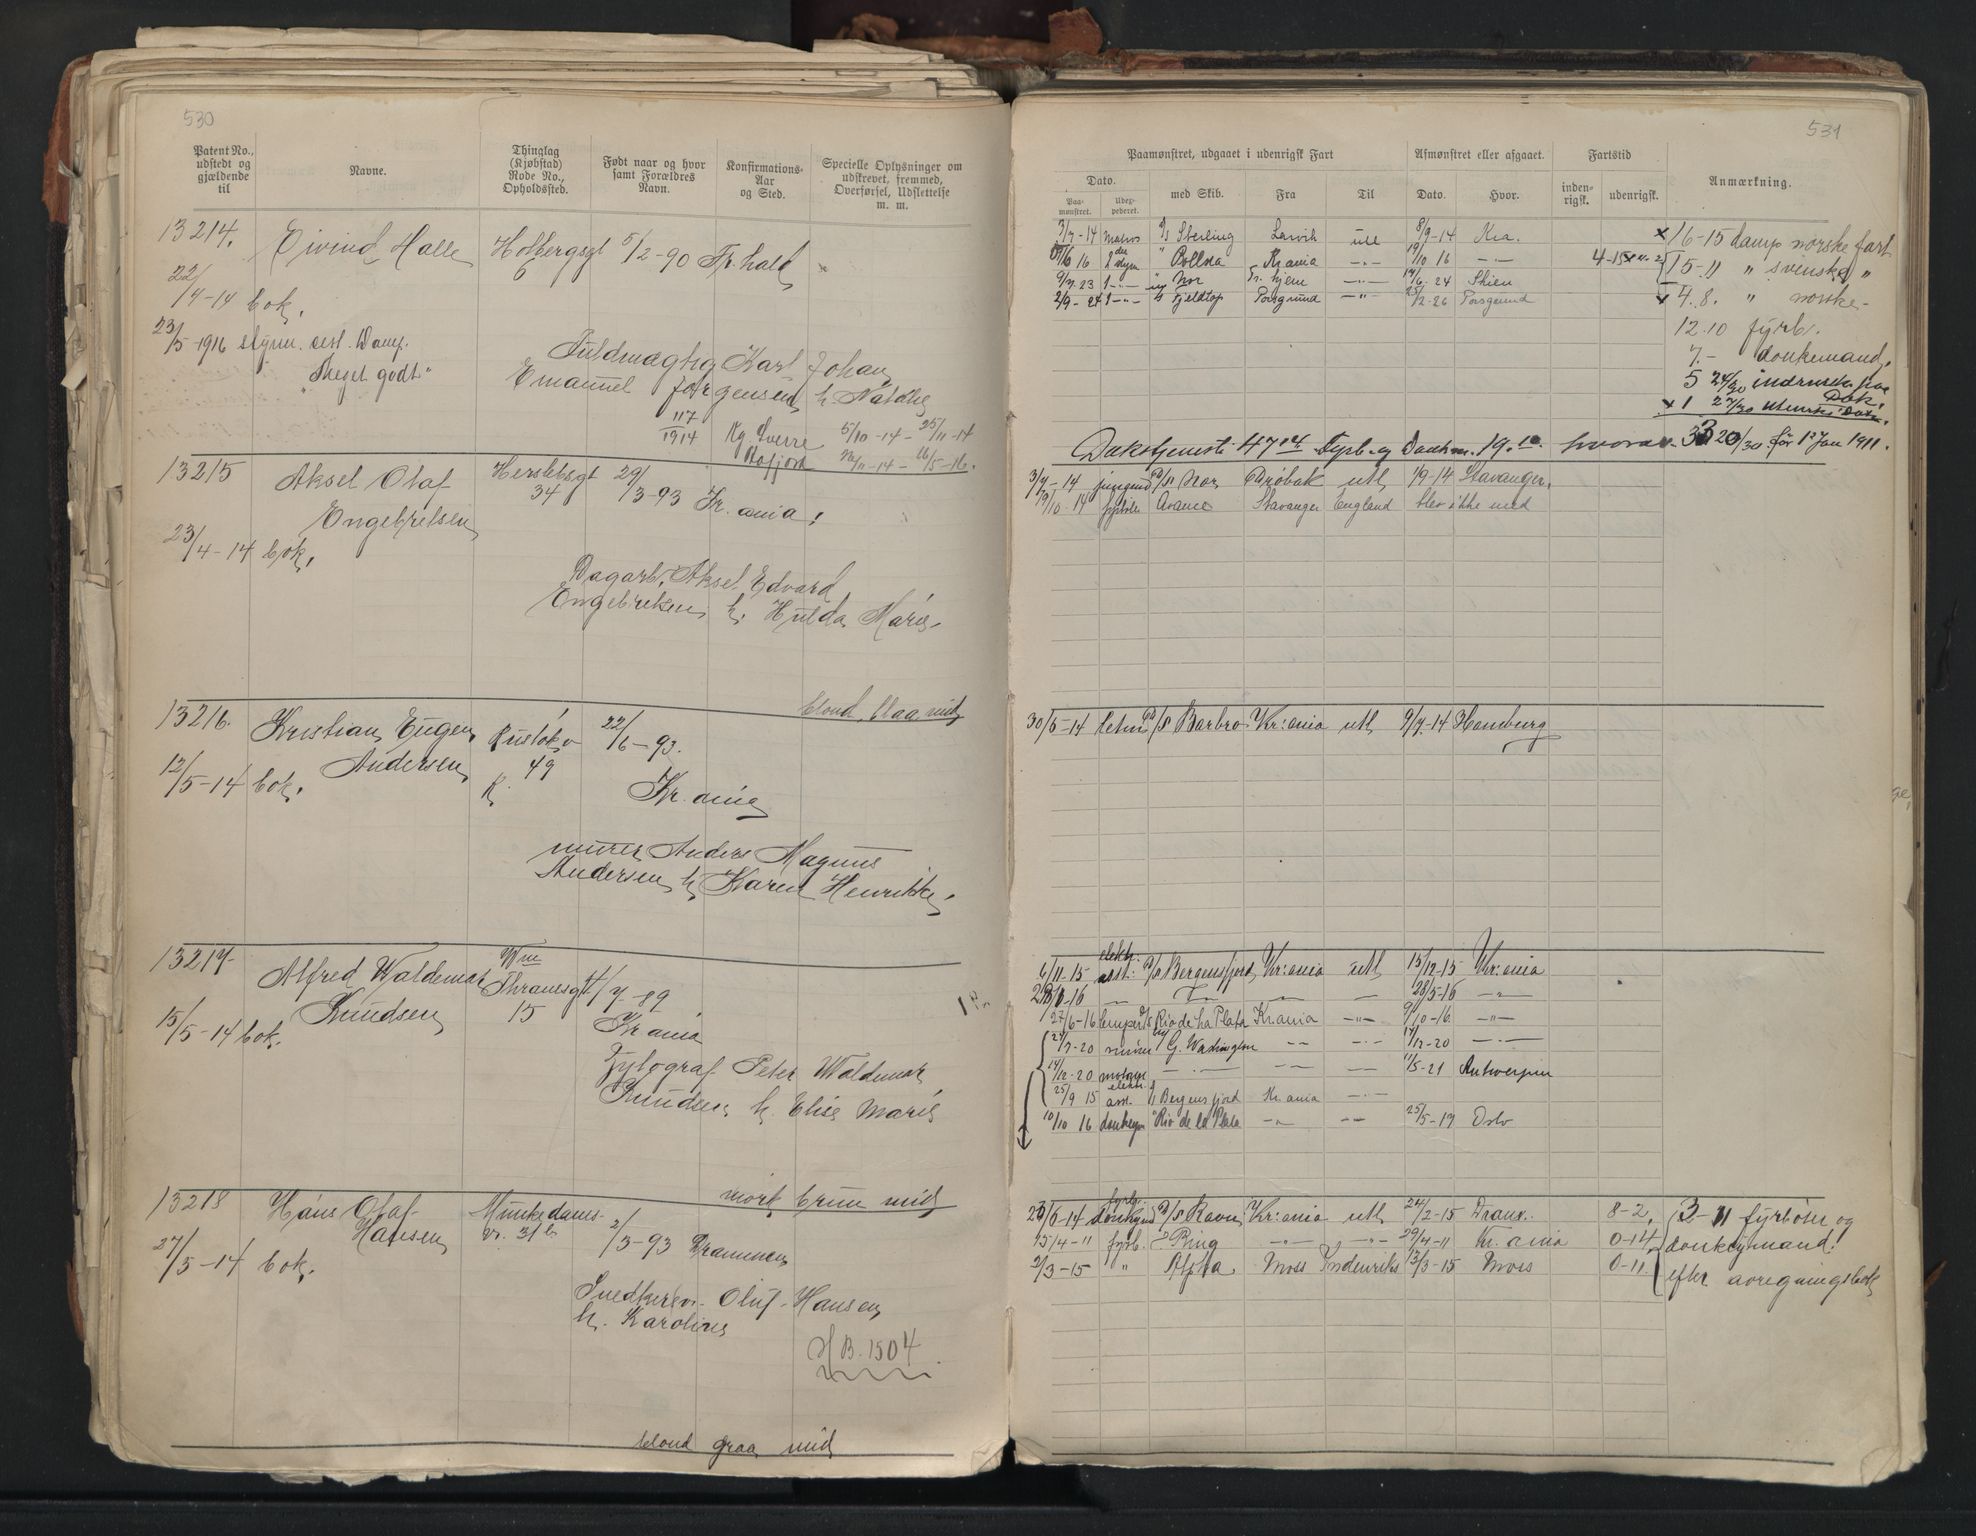 530
Patent No., udstedt og gjældende til
Navne.
Thinglag (Kjøbstad) Rode No., Opholdssted.
Født naar og hvor samt Forældres Navn.
Konfirmations-Aar og Sted.
Specielle Oplysninger om udskrevet, fremmed, Overførsel, Udslettelse m. m.
13214. Eivind Halle Holbergsgt 5/2-90 Fr.hald
6
22/4-14 bok.
23/5-1916 styrm. cert. Damp.
"Meget godt"
Fuldmægtig Karl Johan
Emanuel Jørgensen h. Natalie
117/1914 Kg Sverre 5/10-14 - 25/11-14
13215 Aksel Olaf Herslebsgt 29/3-93 Kr.ania.
34
Engebretsen
23/4-14 bok.
Dagarb. Aksel Edvard
Engebretsen h. Hulda Marie
blond, blaa, mid
13216. Kristian Eugen Ruseløkv 22/6-93.
Andersen 49
12/5-14 bok. Kr.ania
murer Anders Magnus
Andersen h. Karen Henrikke
13217 Alfred Waldemar Thranesgt 4/7-89
Knudsen 15
15/5-14 bok. Kr ania
Xylograf Peter Waldemar
Knudsen h. Elise Marie
mørk brun mid
13218 Hans Olaf Munkedams-
Hansen vr. 31 b 2/3-93 Drammen
27/5-14 bok.
Snedkersv. Oluf Hansen
h. Karoline
HB. 1504
blond graa mid
531
Paamønstret, udgaaet i udenrigsk Fart
Afmønstret eller afgaaet.
Fartstid
Anmærkning.
Dato.
med Skib.
Fra
Til
Dato.
Hvor.
inden-rigsk.
udenrigsk.
Paa-mønstret.
Udex-pederet.
3/7-14 Matros D/S Sterling Larvik utl 8/9-14 Kra. x 16-15 damp norske fart
16 2den styrm " Pollux Kr.ania -"- 19/10 16 -"- 15-11 " svenske "
9/7.23 1 -"- Nor 14/6.24 Skien
2/9-24 1 -"- Fjeldtop Porsgrund -"- 2-26 Porsgrund x 4.8. " norske-
12.10 fyrb.
7.- donkemand.
5 24/30 indenriks
x 1 27/30 utenriks
19.10. hvorav 20/30 før 1' Jan 1911.
3/7-14 jungmd D/S Nor Drøbak utl 1/9-14 Stavanger.
19/10-14 Stavanger England blev ikke med
30/5-14 D/S Barbro Kr:ania utl 9/7-14 Hamburg
elektr.
6/11-15 asst. D/S Bergensfjord Kr:ania utl 15/12-15 Kr:ania
28/5-16 -"-
27/6-16 D/S Rio de La Plata Kr.ania -"- 9/10-16. -"-
27/7-20 G. Washington -"- 14/12-20 -"-
14/12-20 motorm -"- 11/5-21 Antwerpen
elektr.
25/9 15 asst. " Bergensfjord Kr.ania -"-
10/10 16 donkeym " Rio de la Plata -"- 25/5-19 Oslo
fyrb.
23/6-14 donkeymd D/S Ravn Kr:ania utl 24/2-15 8-2. 3-11 fyrbøter og
15/4-11 fyrb. " Ring -"- -"- 29/4-11 Kr. ania 0-14 donkeymand
2/3-15 " Alpha Moss Indenriks 13/3-15 Moss 0-11. efter avregningsbok